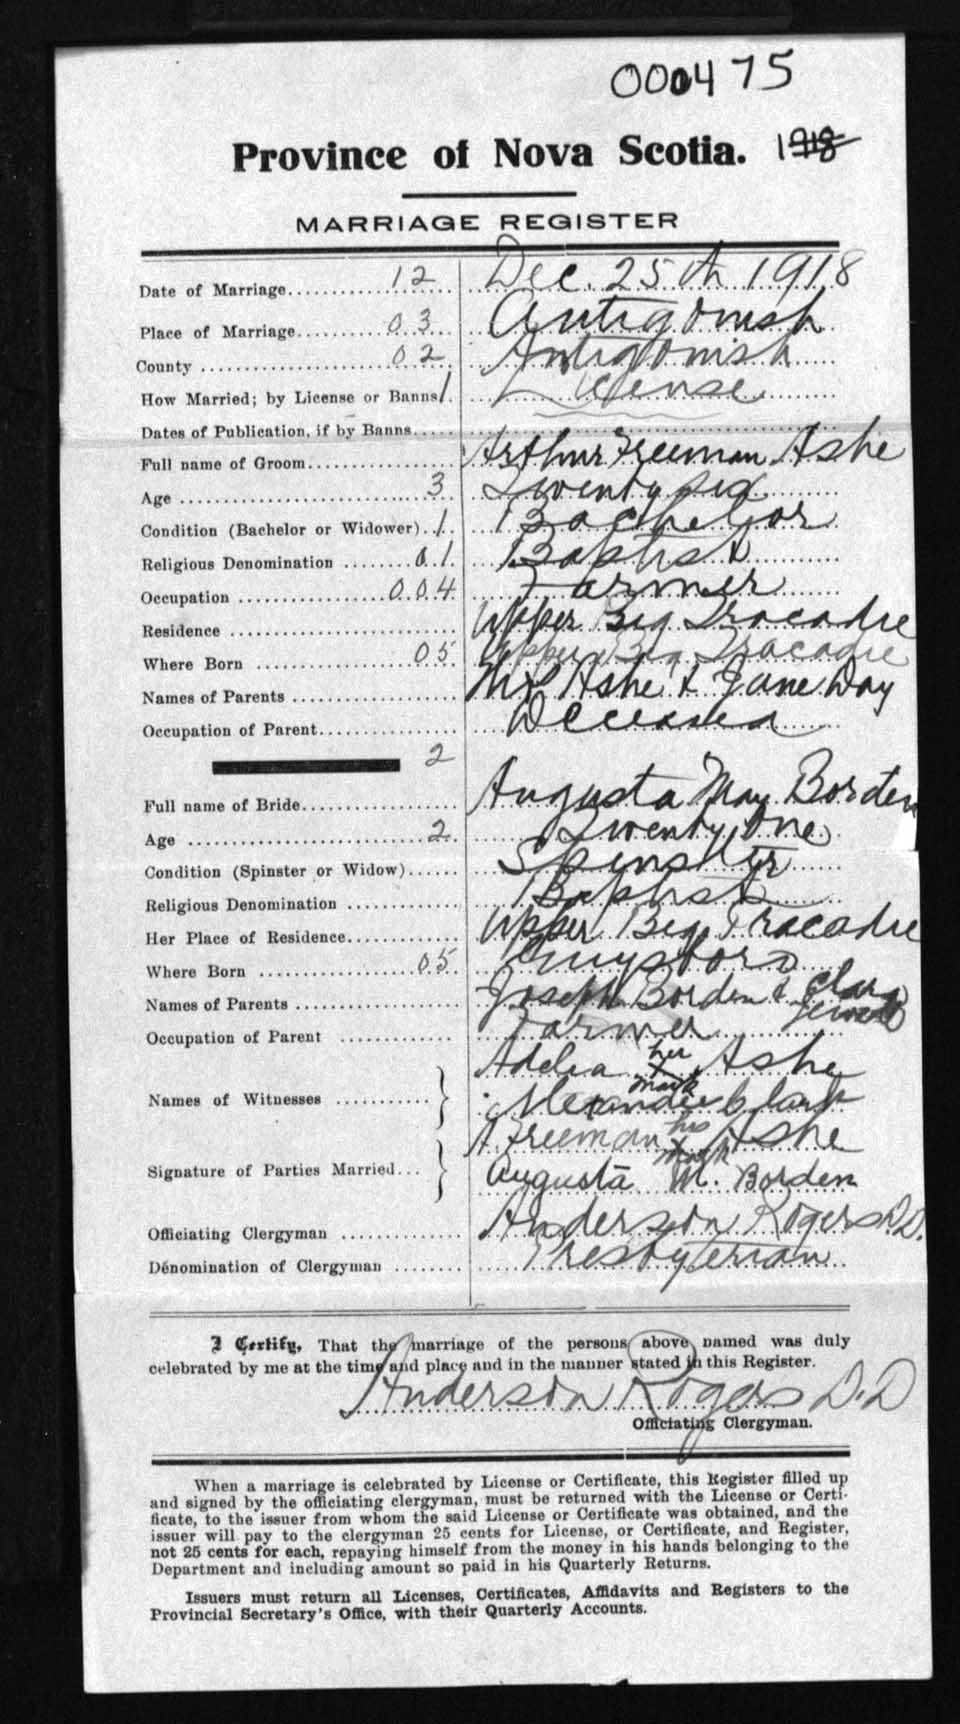 000475
Province of Nova Scotia. 1918
MARRIAGE REGISTER
Date of Marriage 12 Dec. 25th 1918
Place of Marriage 03 Antigonish
County 02 Antigonish
How Married; by License or Banns 1 License
Dates of Publication, if by Banns
Full name of Groom Arthur Freeman Ashe
Age 3 Twenty six
Condition (Bachelor or Widower) 1 Bachelor
Religious Denomination 01 Baptist
Occupation 004 Farmer
Residence Upper Big Tracadie
Where Born 05 Upper Big Tracadie
Names of Parents Ashe & Jane Day
Occupation of Parent Deceased
2
Full name of Bride Augusta May Borden
Age 2 Twenty One
Condition (Spinster or Widow) Spinster
Religious Denomination Baptist
Her Place of Residence Upper Big Tracadie
Where Born 05 Guysboro
Names of Parents Joseph Borden & Clara
Occupation of Parent Farmer
Names of Witnesses Adelia her X mark Ashe
Alexander Clark
Signature of Parties Married A Freeman his X mark Ashe
Augusta M. Borden
Officiating Clergyman Anderson Rogers D.D.
Dénomination of Clergyman Presbyterian
I Certify, That the marriage of the persons above named was duly
celebrated by me at the time and place and in the manner stated in this Register.
Anderson Rogers D.D
Officiating Clergyman.
When a marriage is celebrated by License or Certificate, this Register filled up
and signed by the officiating clergyman, must be returned with the License or Certi-
ficate, to the issuer from whom the said License or Certificate was obtained, and the
issuer will pay to the clergyman 25 cents for License, or Certificate, and Register,
not 25 cents for each, repaying himself from the money in his hands belonging to the
Department and including amount so paid in his Quarterly Returns.
Issuers must return all Licenses, Certificates, Affidavits and Registers to the
Provincial Secretary's Office, with their Quarterly Accounts.